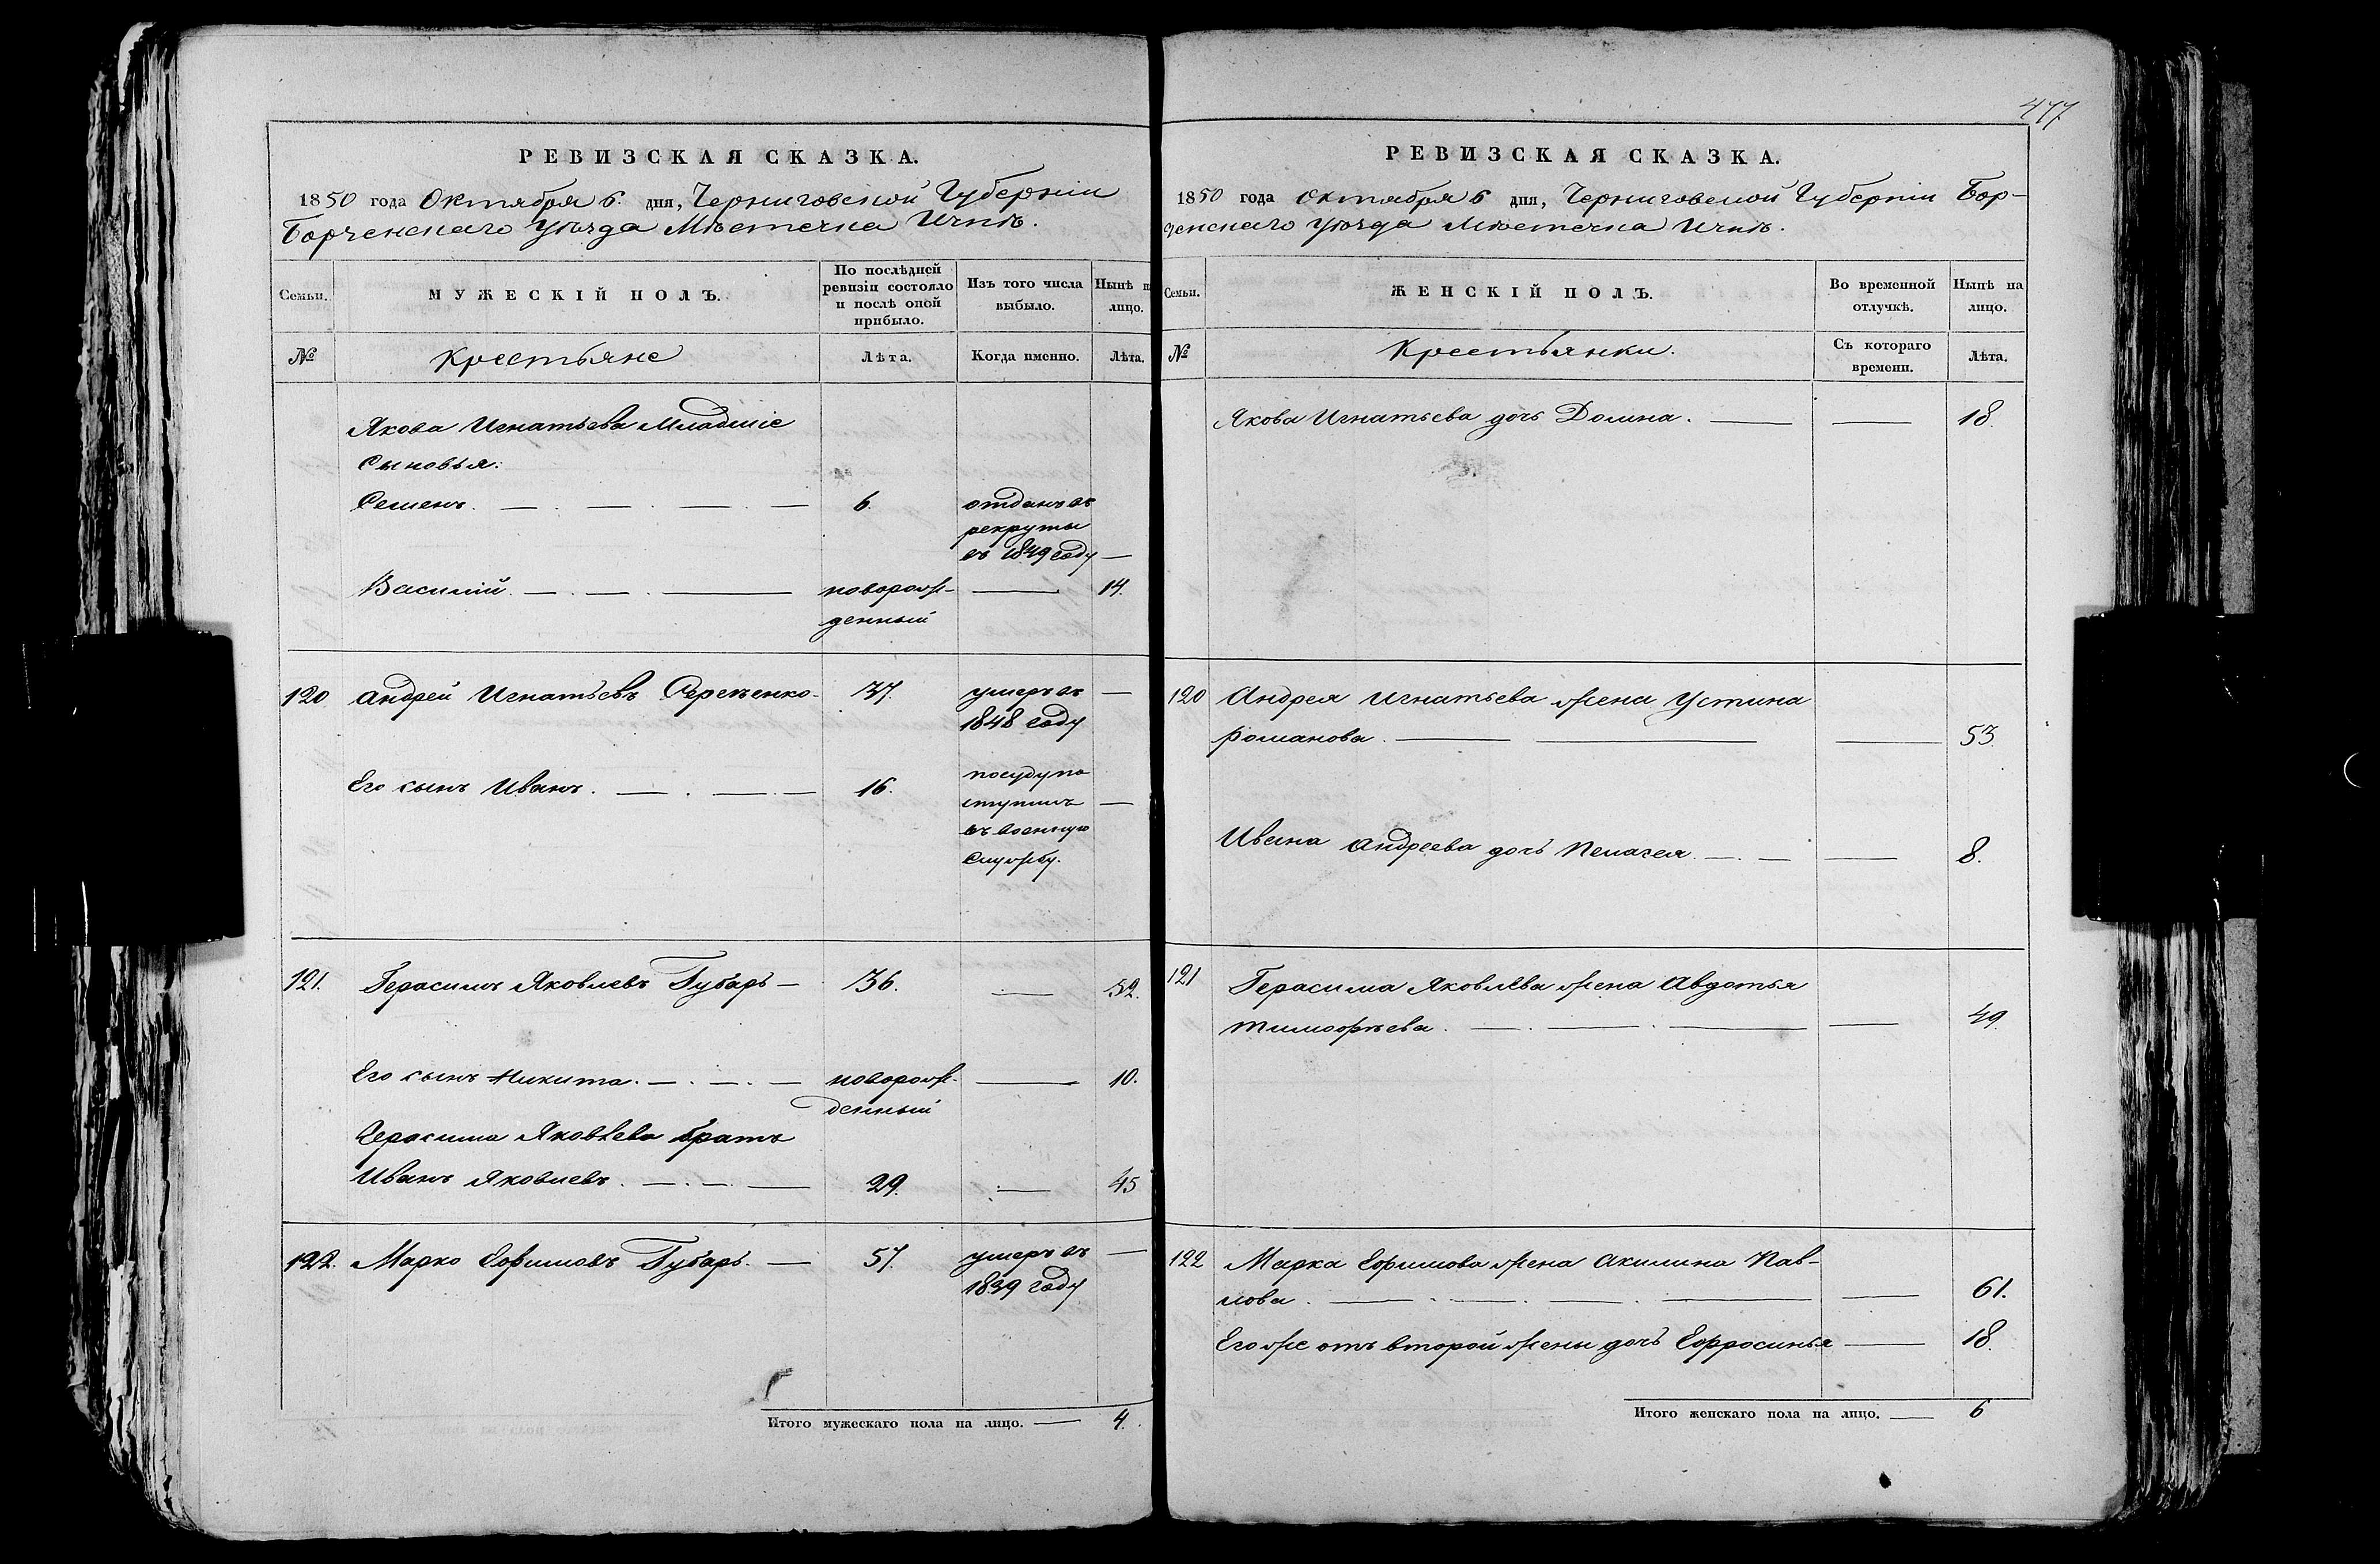 РЕВИЗСКАЯ СКАЗКА.
1850 года Октября 6. дня, Черниговской Губерніи
Борзенскаго Уѣзда Мѣстечка Ични.
Семьи.
МУЖЕСКІЙ ПОЛЪ.
По послѣдней ревизіи состояло и послѣ оной прибыло.
Изъ того числа выбыло.
Нынѣ н лицо.
№
Крестьяне
Лѣта.
Когда именно.
Лѣта.
Якова Игнатьева Младшіе
Сыновья:
Семенъ. 6. отданъ въ
рекруты
въ 1849 году —
Василій. новорож- — 14.
денный
120 Андрей Игнатьевъ 37. умеръ въ —
1848 году
Его сынъ Иванъ. 16. посуду по
ступилъ —
въ военную
Службу.
121. Герасимъ Яковлевъ Губарь — 36. — 52.
Его сынъ Никита. новорож- — 10.
денный
Герасима Яковлева братъ
Иванъ Яковлевъ. 29. — 45
122. Марко Ефимовъ Губарь. — 57. умеръ въ —
1839 году
Итого мужескаго пола на лицо. — 4.
477
РЕВИЗСКАЯ СКАЗКА.
1850 года Октября 6 дня, Черниговской Губерніи Бор-
зенскаго Уѣзда Мѣстечка Ични.
Семьи.
ЖЕНСКІЙ ПОЛЪ.
Во временной отлучкѣ.
Нынѣ на лицо.
№
Крестьянки.
Съ котораго времени.
Лѣта.
Якова Игнатьева дочь Домна. — — 18.
120 Андрея Игнатьева жена Устина
Романова. — — 53.
Ивана Андреева дочь Пелагея. — — 8.
121 Герасима Яковлева жена Авдотья
Тимофѣева. — — 49.
122 Марка Ефимова жена Акилина Пав-
лова. — — 61.
Его же отъ второй жены дочь Ефросинья — 18.
Итого женскаго пола на лицо. — 6